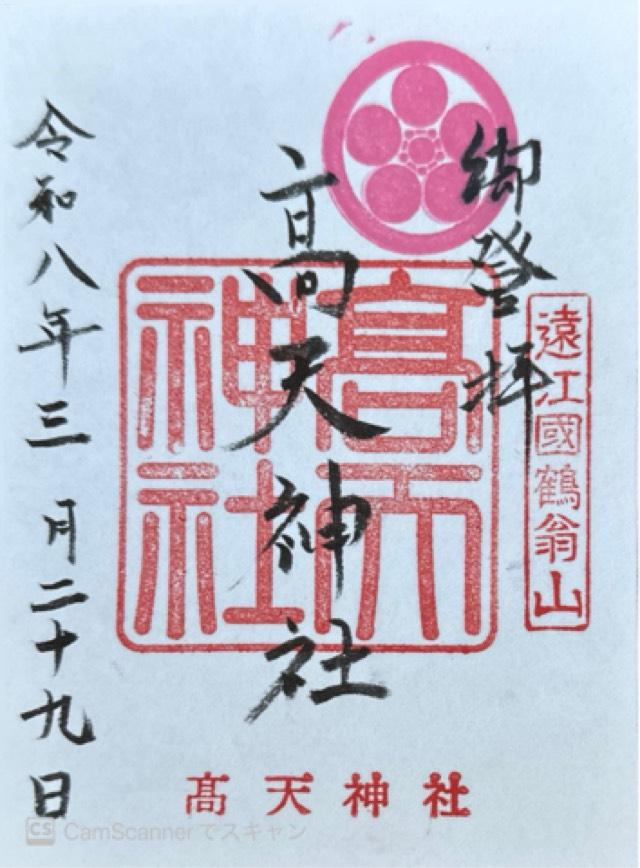 御登拝
遠江國鶴翁山
髙天神社
高天
神社
令和八年三月二十九日
髙天神社
CS CamScannerでスキャン